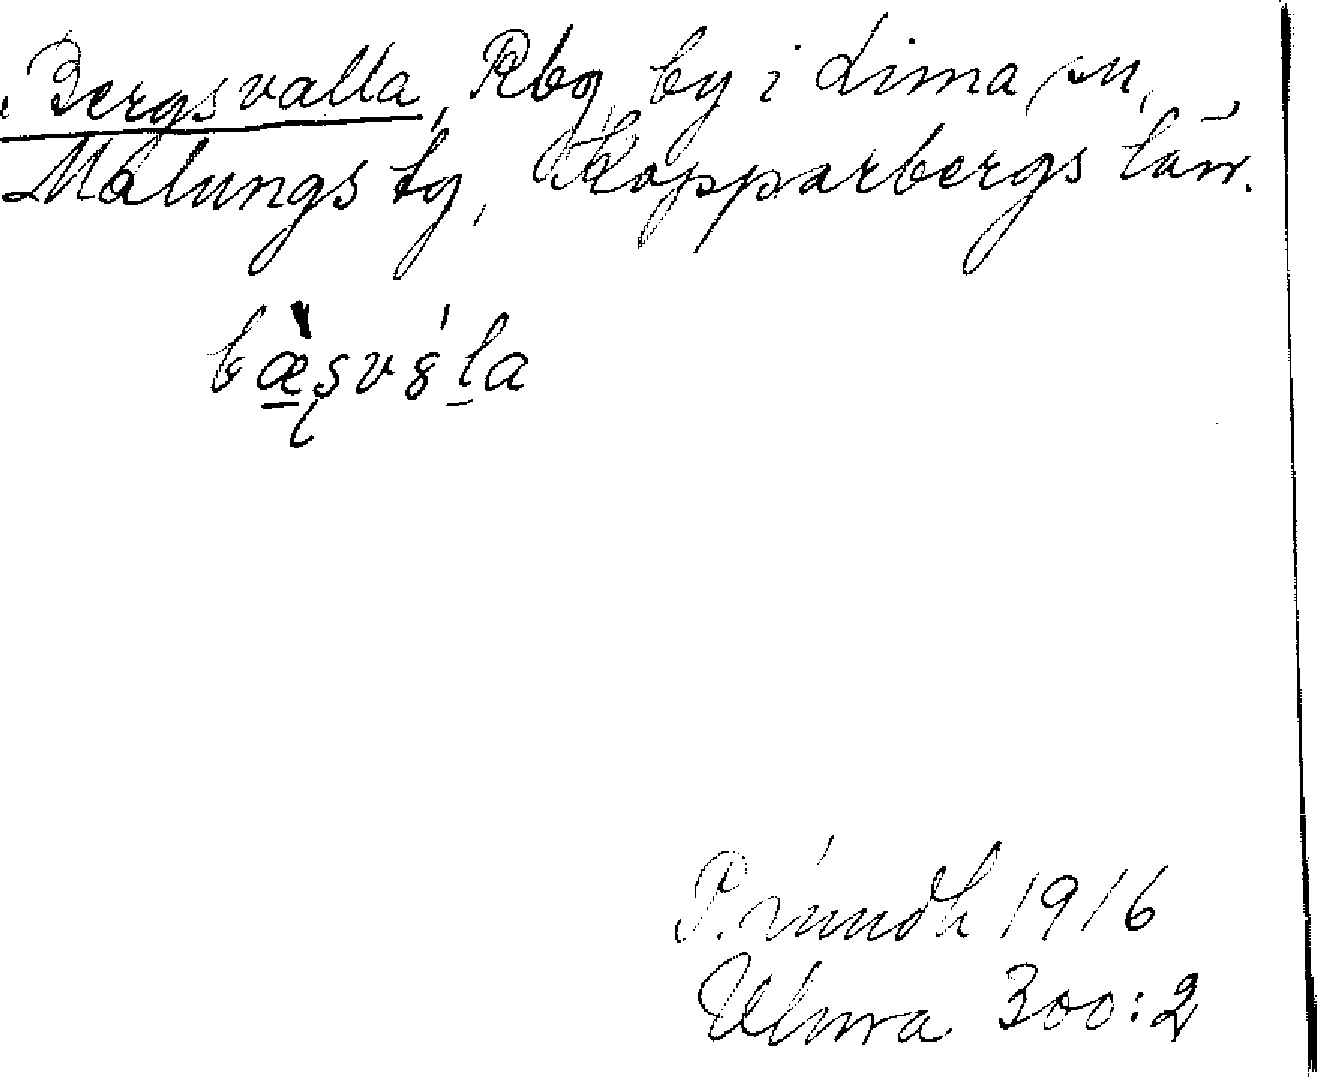 Bergsvalla, Rbg, by i Lima sn,
Malungs tg, Kopparbergs län.
bæ̀ṣvá̤la
1916
300:2